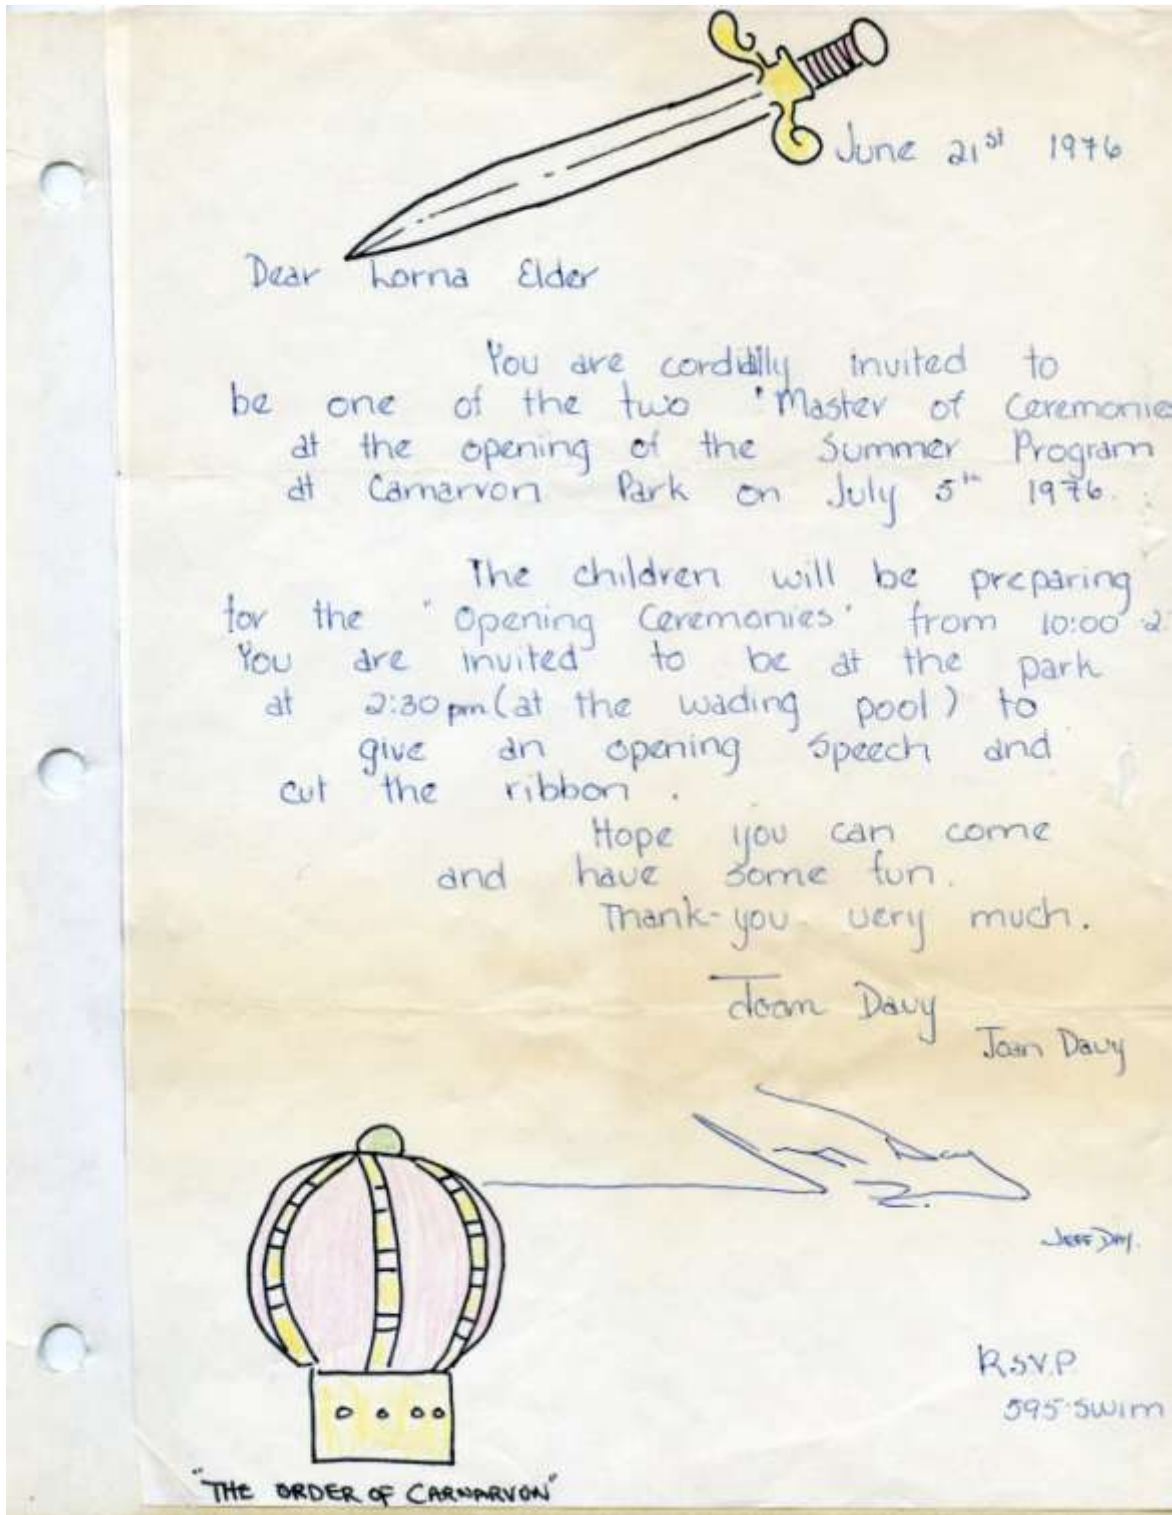 June 21st 1976
Dear Lorna Elder
You are cordially invited to
be one of the two "Master of Ceremonies
at the opening of the Summer Program
at Carnarvon Park on July 5th 1976.
The children will be preparing
for the "Opening Ceremonies" from 10:00 2:
You are invited to be at the park
at 2:30 pm (at the wading pool) to
give an opening speech and
cut the ribbon.
Hope you can come
and have some fun.
Thank-you very much.
Joan Davy
Joan Davy
JEFF DAY.
R.S.V.P.
595-swim
"THE ORDER OF CARNARVON"